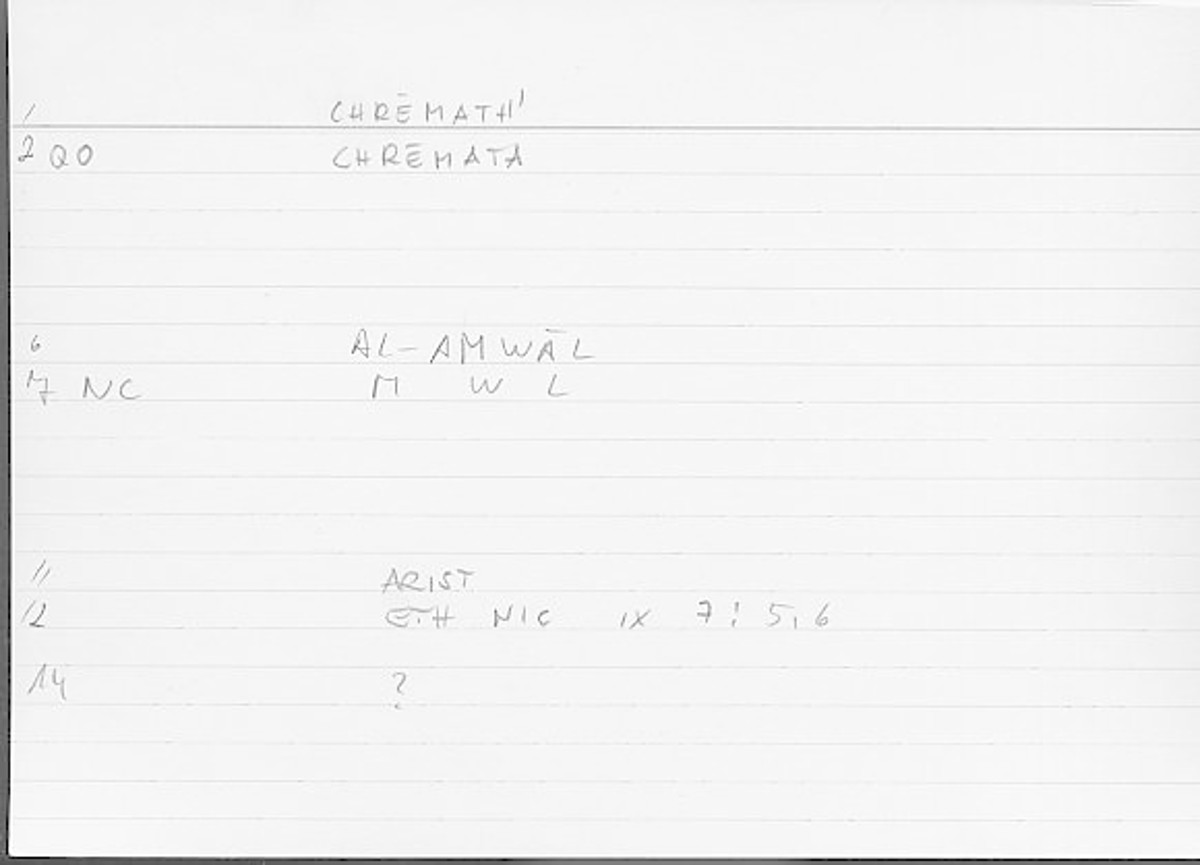 1 CHRĒMATH'
2 QO CHRĒMATA
6 AL-AMWĀL
7 NC M W L
11 ARIST
12 ETH NIC IX 7: 5, 6
14 ?